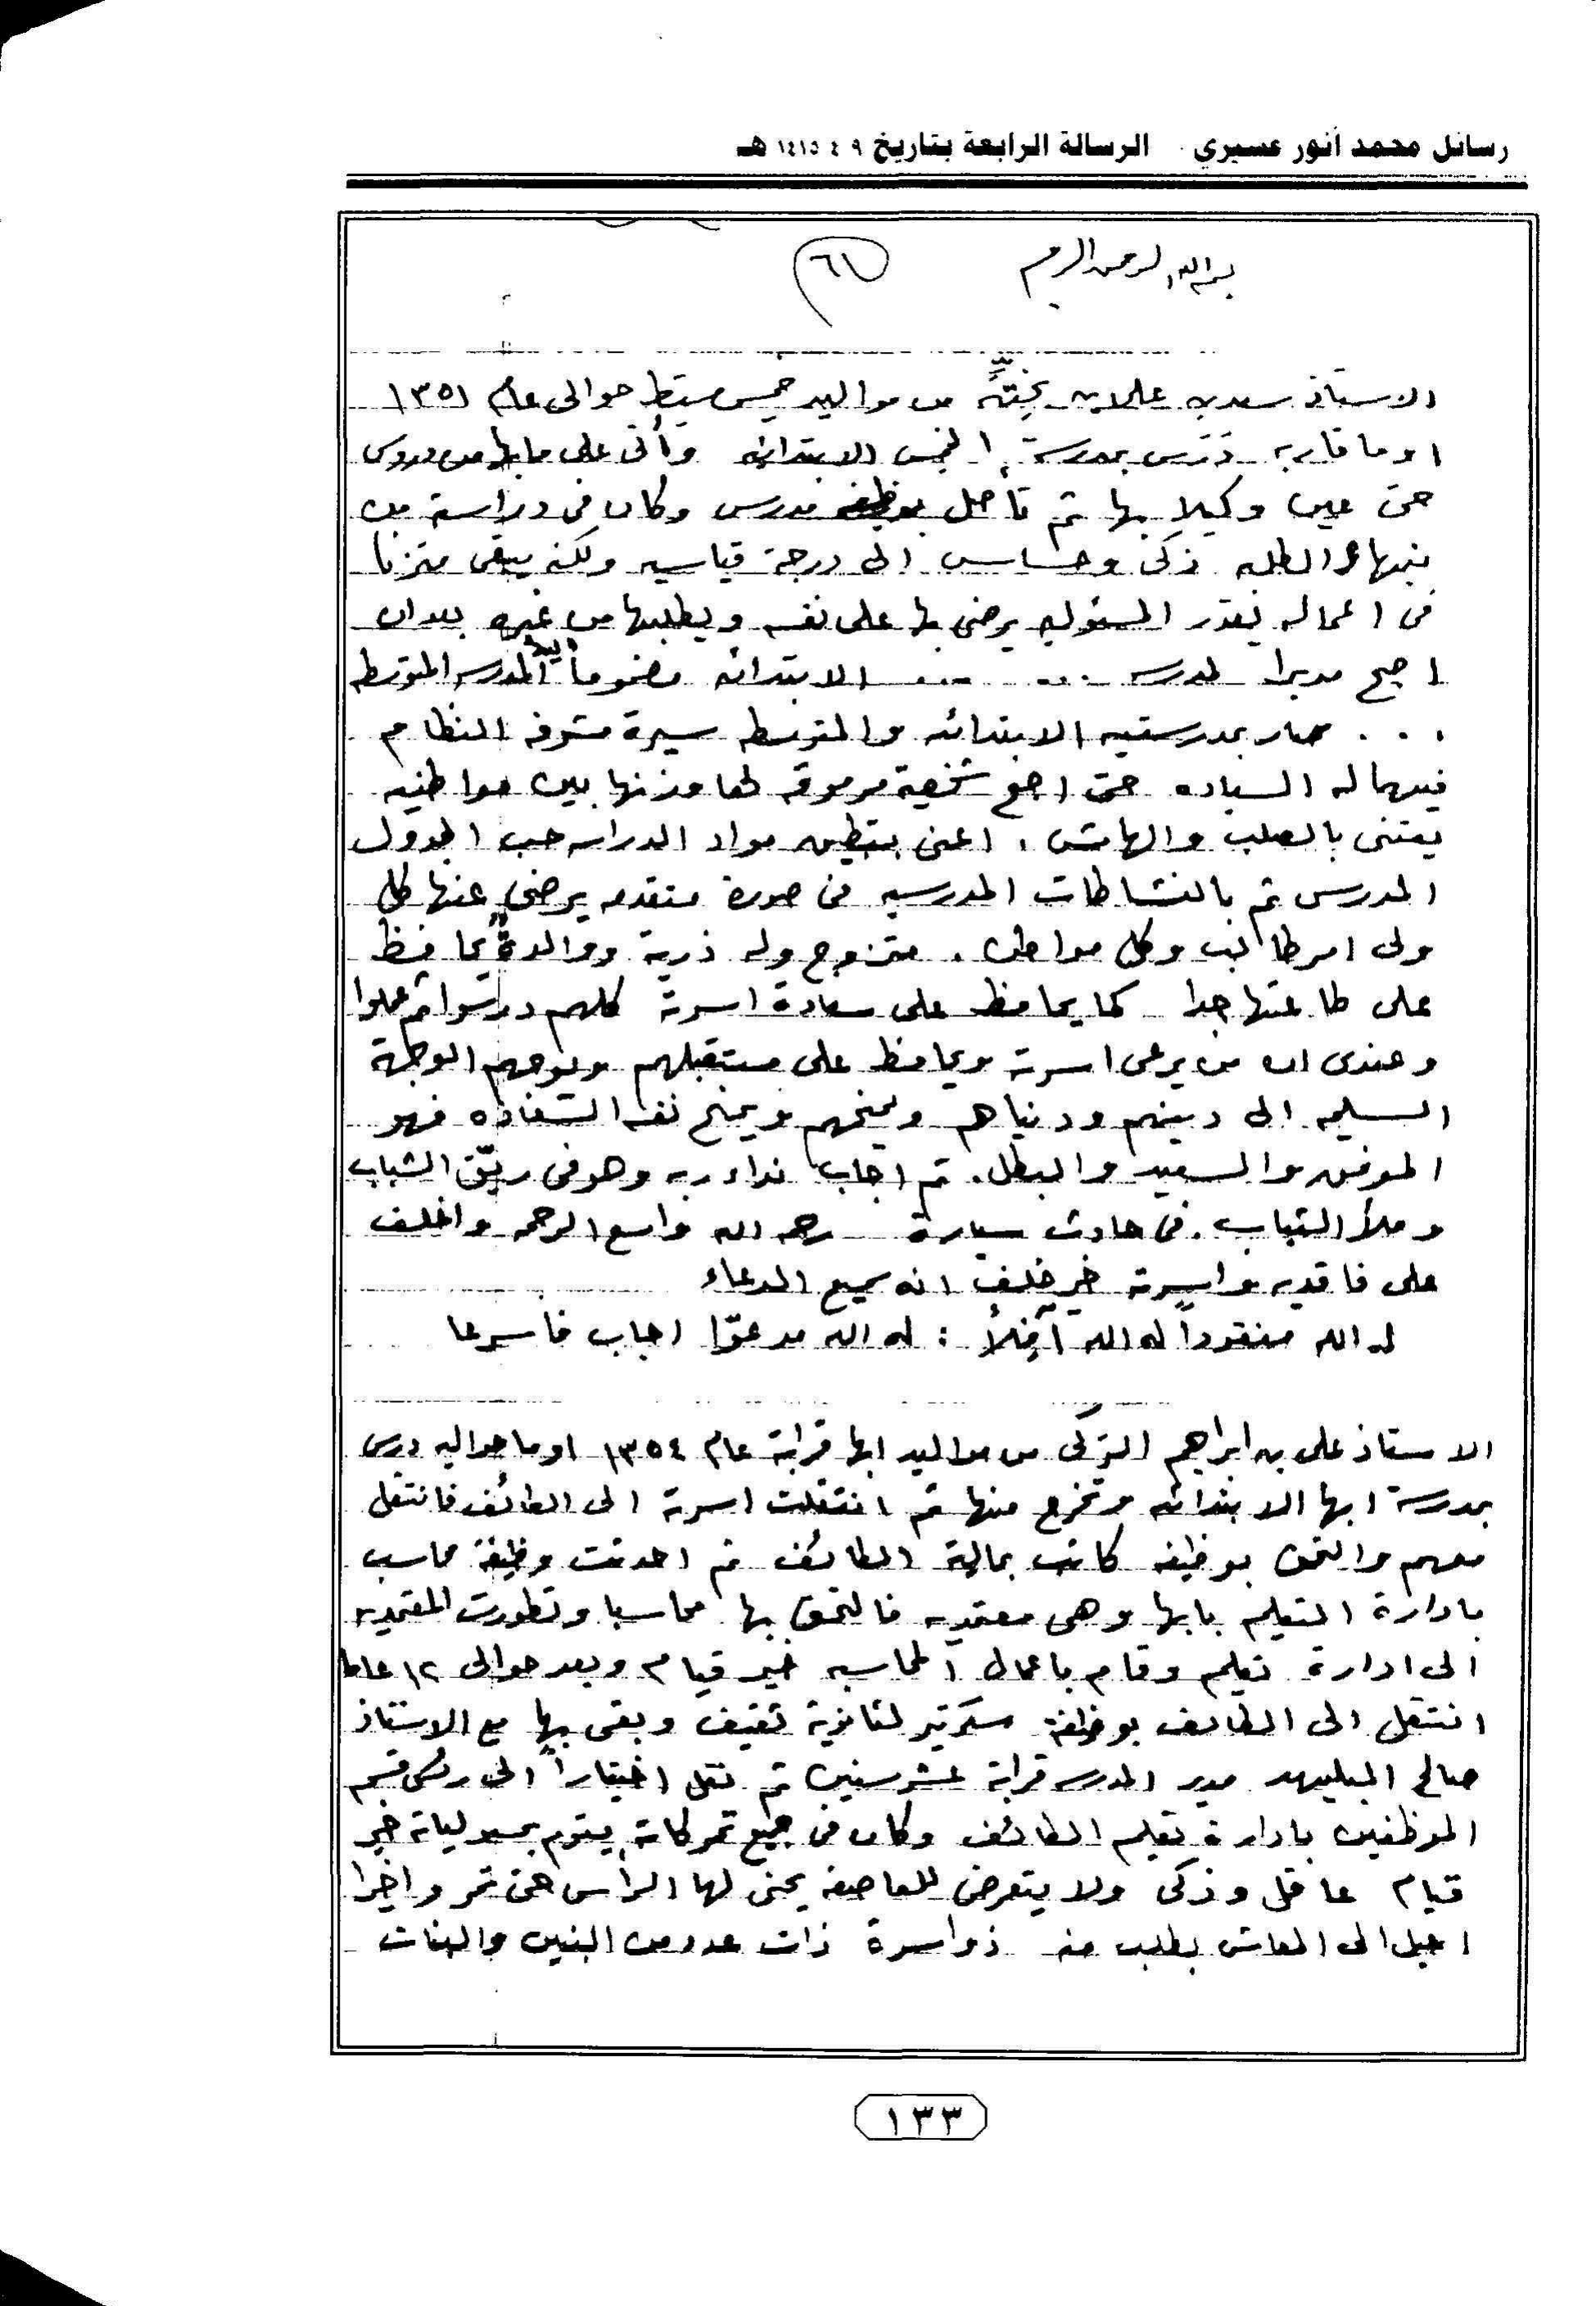 رسائل محمد أنور عسيري الرسالة الرابعة بتاريخ ٩ ٤ ١٤١٥ هـ
بسم الله الرحمن الرحيم
٦١
الاستاذ سعد بن على بن من مواليد خميس مشيط حوالى عام ١٣٥١
او ما قاربه درس بمدرسة الخميس الابتدائيه وأتى على ما بها من دروس
حتى عين وكيلا بها ثم تأهل بوظيفه مدرس وكان فى دراسته من
نبهاء الطلبه ذكى وحساس الى درجة قياسيه ولكنه يبقى متزنا
فى اعماله يقدر المسئوليه يرضى بها على نفسه ويطلبها من غيره بعد ان
اصبح مديرا لمدرسه ... ... الابتدائه مضموماً اليها المدرسه المتوسطه
... صار بمدرستيه الابتدائه والمتوسطه سيرة مشرفه النظام
فيهما له السياده حتى اصبح شخصية مرموقه لها وزنها بين مواطنيه
يعتنى بالصلب والهامش ، اعنى بتطبيق مواد الدراسه حسب الجدول
المدرسى ثم بالنشاطات المدرسيه فى صورة متقدمه يرضى عنها كل
ولى امر طالب وكل مواطن . متزوج وله ذرية ووالدةٌ يحافظ
على طاعتها جدا كما يحافظ على سعادة اسرته كلهم درسوا ثم عملوا
وعندى ان من يرعى اسرته ويحافظ على مستقبلهم ويوجههم الوجهة
السليمه الى دينهم ودنياهم ويمنحهم ويمنح نفسه السعاده فهو
الموفق والسعيد والبطل. ثم اجاب نداء ربه وهو فى ريّق الشباب
وملأ الشباب . فى حادث سيارة رحمه الله واسع الرحمه واخلف
على فاقديه واسرته خير خلف انه سميع الدعاء
له الله مفقوداً له الله آفلاً : له الله مدعوّا اجاب فاسرعا
الاستاذ على بن ابراهيم التركى من مواليد ابها قرابة عام ١٣٥٤ او ما حواليه درس
بمدرسة ابها الابتدائه وتخرج منها ثم انتقلت اسرته الى الطائف فانتقل
معهم والتحق بوظيفه كاتب بمالية الطائف ثم احدثت وظيفة محاسب
بادارة التعليم بابها وهى معتمديه فالتحق بها محاسبا وتطورت المعتمديه
الى ادارة تعليم وقام باعمال المحاسبه خير قيام وبعد حوالى ١٢ عاما
انتقل الى الطائف بوظيفة سكرتير لثانوية ثقيف وبقى بها مع الاستاذ
صالح المبليهد مدير المدرسه قرابة عشر سنين ثم نقل اختياراً الى رئيس قسم
الموظفين بادارة تعليم الطائف وكان فى جميع تحركاته يقوم بمسؤلياته خير
قيام عاقل وذكى ولا يتعرض للعاصفه يحنى لها الرأس حتى تمر واخيرا
احيل الى المعاش بطلب منه ذو اسرة ذات عدد من البنين والبنات
١٣٣